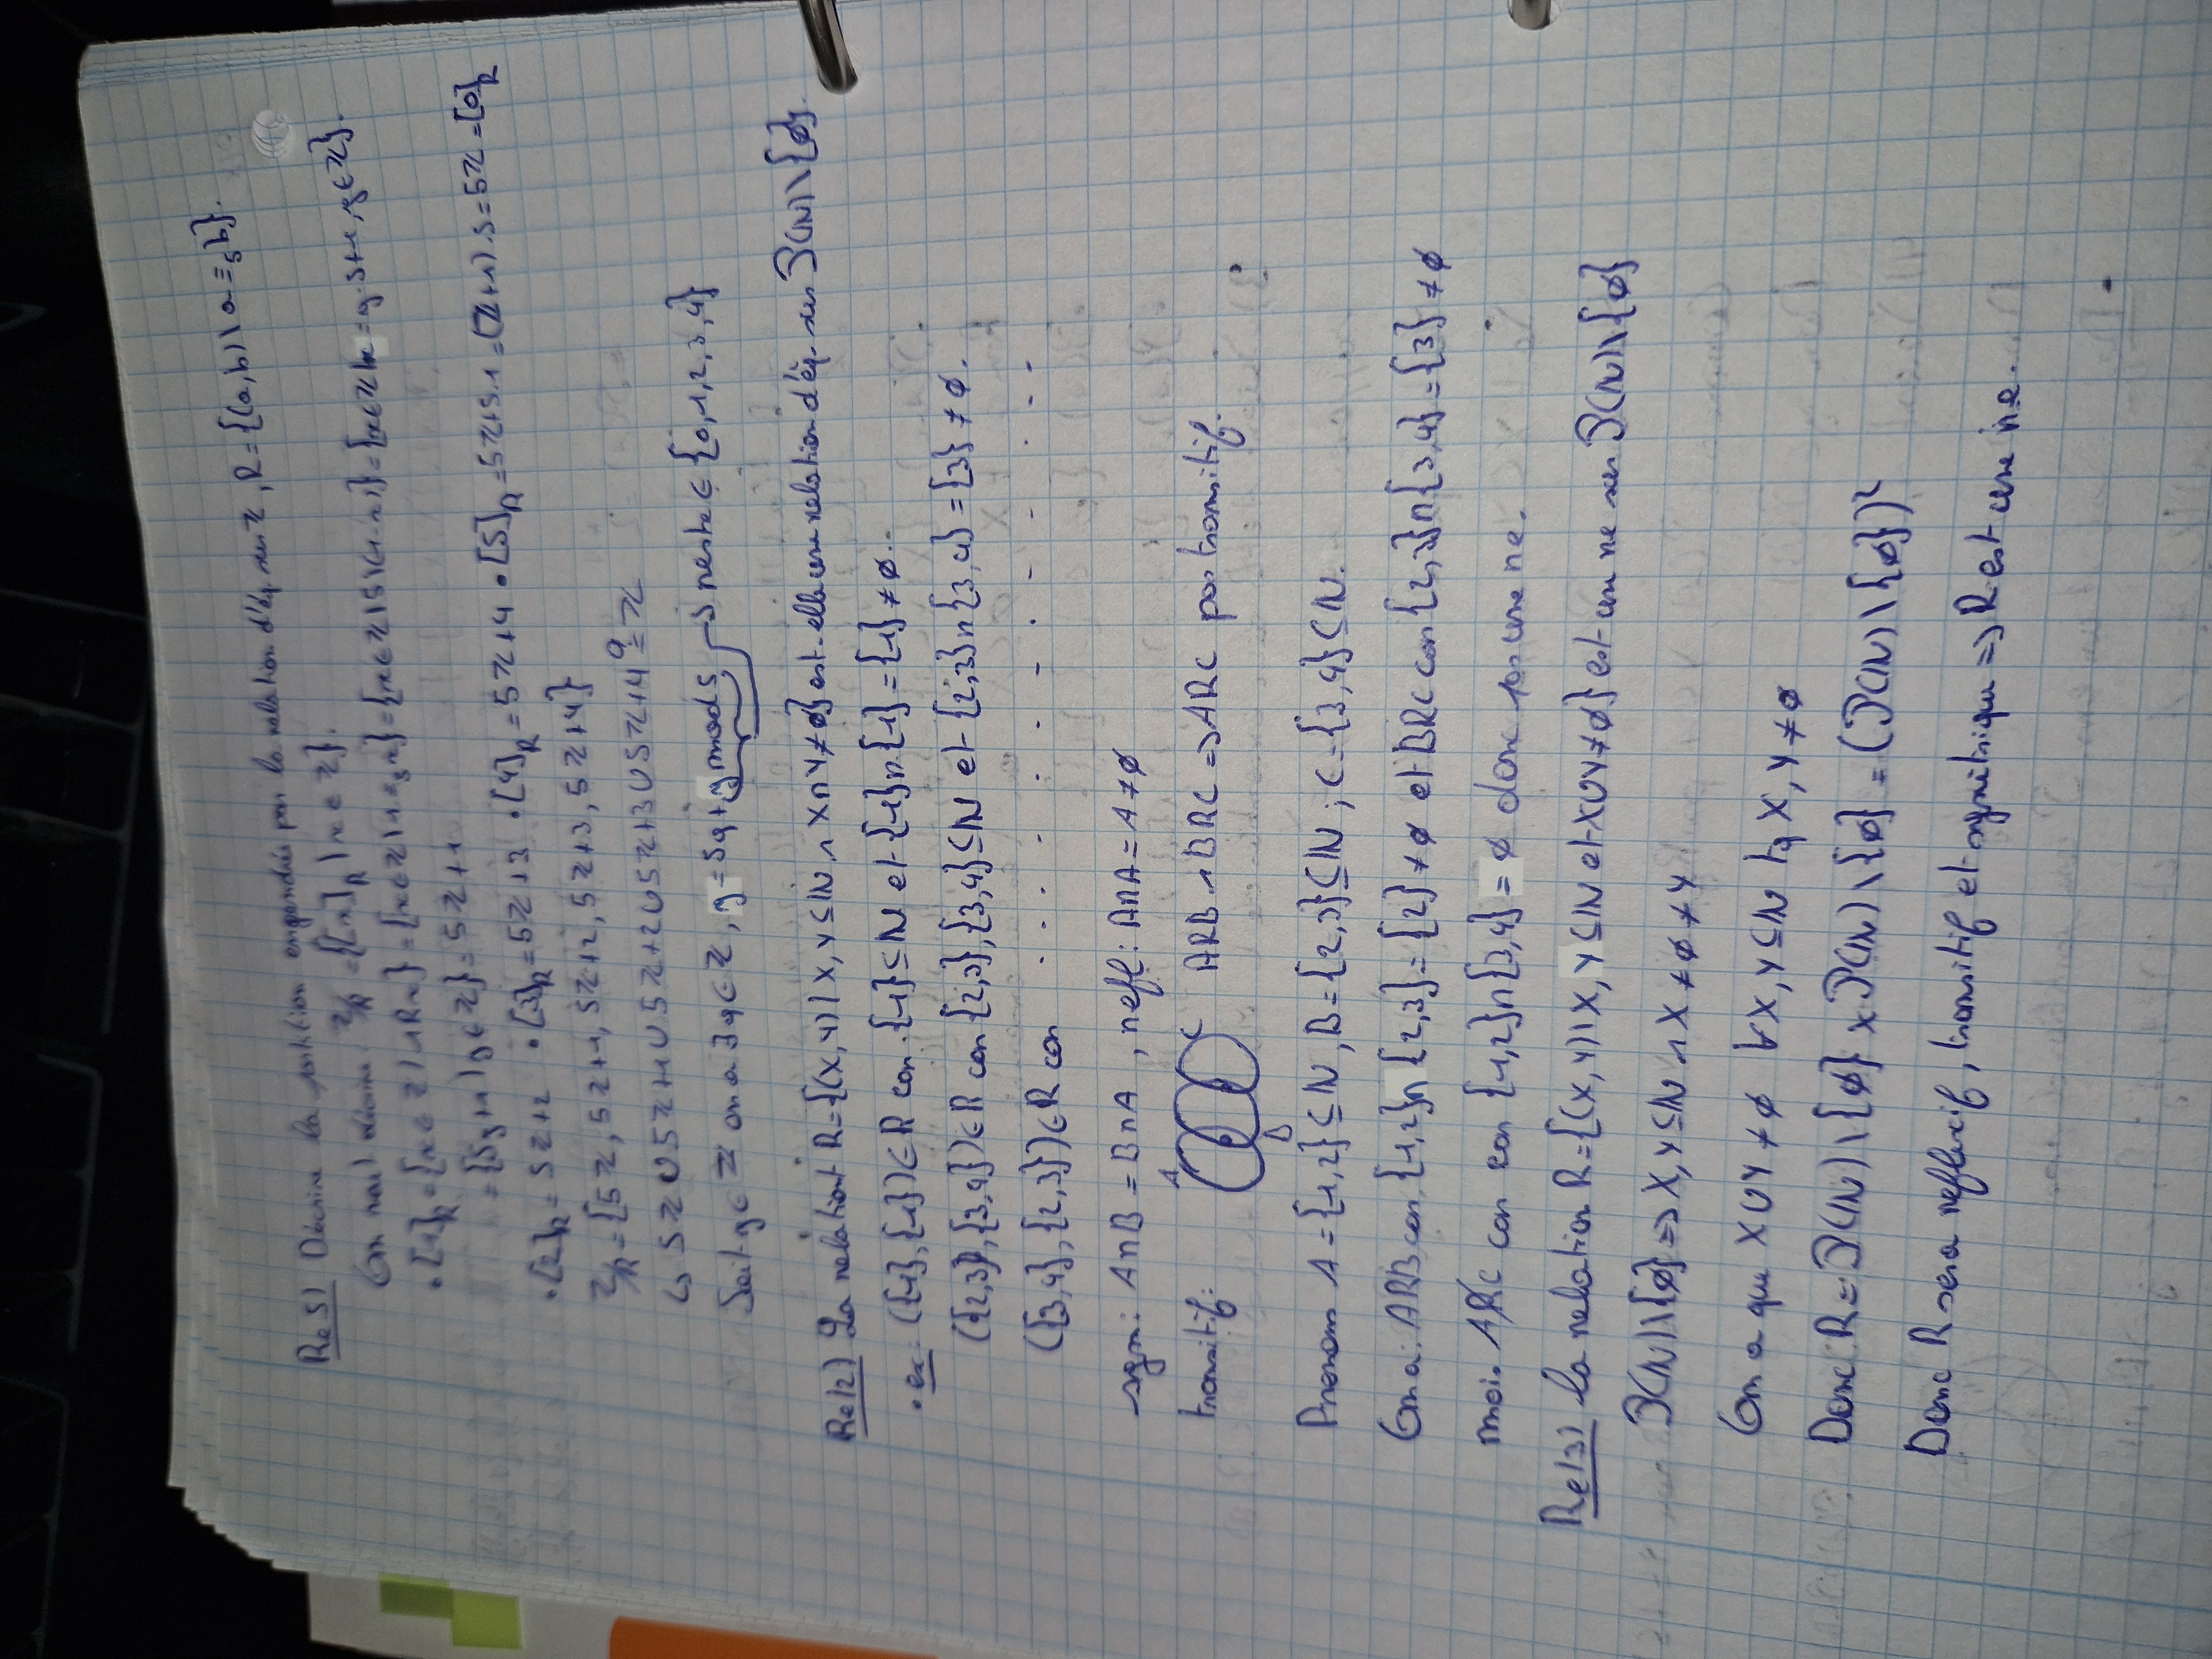 Re 5) Décrire la partition engendrée par la relation d'éq. sur ℤ, R = {(a,b) \ a ≡₅ b}.
On veut écrire ℤ/R = {[x]_R | x ∈ ℤ}.
• [1]_R = {x ∈ ℤ | 1Rx} = {x ∈ ℤ \ 1 ≡₅ x} = {x ∈ ℤ | 5 | (1-x)} = {x ∈ ℤ | x = y·5+1, y ∈ ℤ}.
= {5y+1 | y ∈ ℤ} = 5ℤ+1
• [2]_R = 5ℤ+2 • [3]_R = 5ℤ+3 • [4]_R = 5ℤ+4 • [5]_R = 5ℤ+5·1 = (ℤ+1)·5 = 5ℤ = [0]_R
ℤ/R = {5ℤ, 5ℤ+1, 5ℤ+2, 5ℤ+3, 5ℤ+4}
↳ 5ℤ ∪ 5ℤ+1 ∪ 5ℤ+2 ∪ 5ℤ+3 ∪ 5ℤ+4 =? ℤ
Soit y ∈ ℤ on a ∃q ∈ ℤ, y = 5q + y mod 5 → reste ∈ {0,1,2,3,4}
Re 12) La relation R = {(X,Y) | X,Y ⊆ ℕ ∧ X∩Y ≠ ∅} est-elle une relation d'éq. sur P(ℕ)\{∅}.
• ex: ({1},{1}) ∈ R car {1} ⊆ ℕ et {1} ∩ {1} = {1} ≠ ∅.
({2,3},{3,4}) ∈ R car {2,3},{3,4} ⊆ ℕ et {2,3} ∩ {3,4} = {3} ≠ ∅.
({3,4},{2,3}) ∈ R car . . . . . . . . . . . .
sym: A∩B = B∩A , refl: A∩A = A ≠ ∅
transitif: A B C ARB ∧ BRC => ARC pas transitif.
Prenons A = {1,2} ⊆ ℕ, B = {2,3} ⊆ ℕ ; C = {3,4} ⊆ ℕ.
On a: ARB car {1,2} ∩ {2,3} = {2} ≠ ∅ et BRC car {2,3} ∩ {3,4} = {3} ≠ ∅
mais AR̸C car car {1,2} ∩ {3,4} = ∅ donc pas une re.
Re 13) la relation R = {(X,Y) | X,Y ⊆ ℕ et X∪Y ≠ ∅} est une re sur P(ℕ)\{∅}
P(ℕ)\{∅} => X,Y ⊆ ℕ ∧ X ≠ ∅ ≠ Y
On a que X∪Y ≠ ∅ ∀X,Y ⊆ ℕ tq X,Y ≠ ∅
Donc R = P(ℕ)\{∅} × P(ℕ)\{∅} = (P(ℕ)\{∅})²
Donc R sera reflexif, transitif et symétrique => R est une r.e.